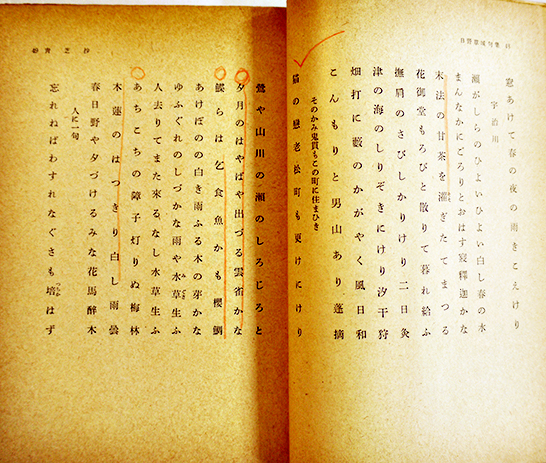 日野草城句集
窓あけて春の夜の雨きこえけり
宇治川
瀬がしらのひよいひよい白し春の水
まんなかにごろりとおはす寝釈迦かな
末法の甘茶を灌ぎたてまつる
花御堂もろびと散りて暮れ給ふ
撫肩のさびしかりけり二日灸
津の海のしりぞきにけり汐干狩
畑打に藪のかがやく風日和
こんもりと男山あり蓬摘
そのかみ鬼貫もこの町に住まひき
猫の戀老松町も更けにけり
鶯や山川の瀬のしろじろと
夕月のはやばや出づる雲雀かな
鯎らは乞食魚かも櫻鯛
あけぼのの白き雨ふる木の芽かな
ゆふぐれのしづかな雨や水草生ふ
人去りてまた來るなし水草生ふ
あちこちの障子灯りぬ梅林
木蓮のはつきり白し雨曇
春日野や夕づけるみな花馬醉木
人に一句
忘れねばわすれなぐさも培はず